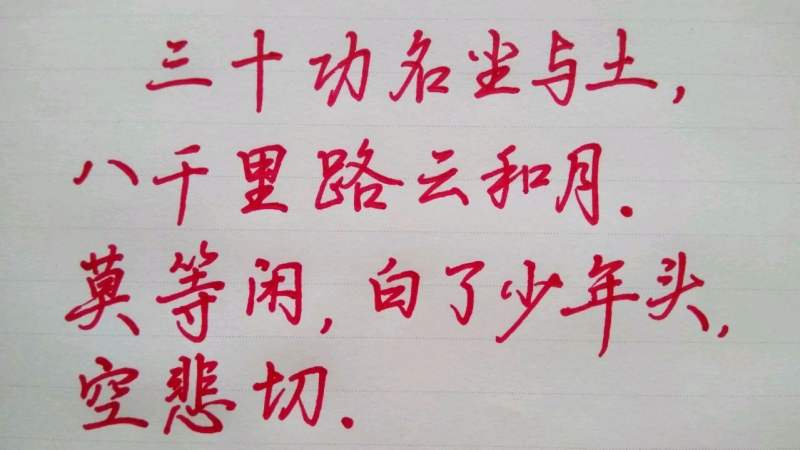 三十功名尘与土,
八千里路云和月.
莫等闲,白了少年头,
空悲切.